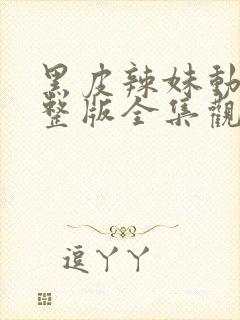 黑皮辣妹動
整版全集觀
逗丫丫